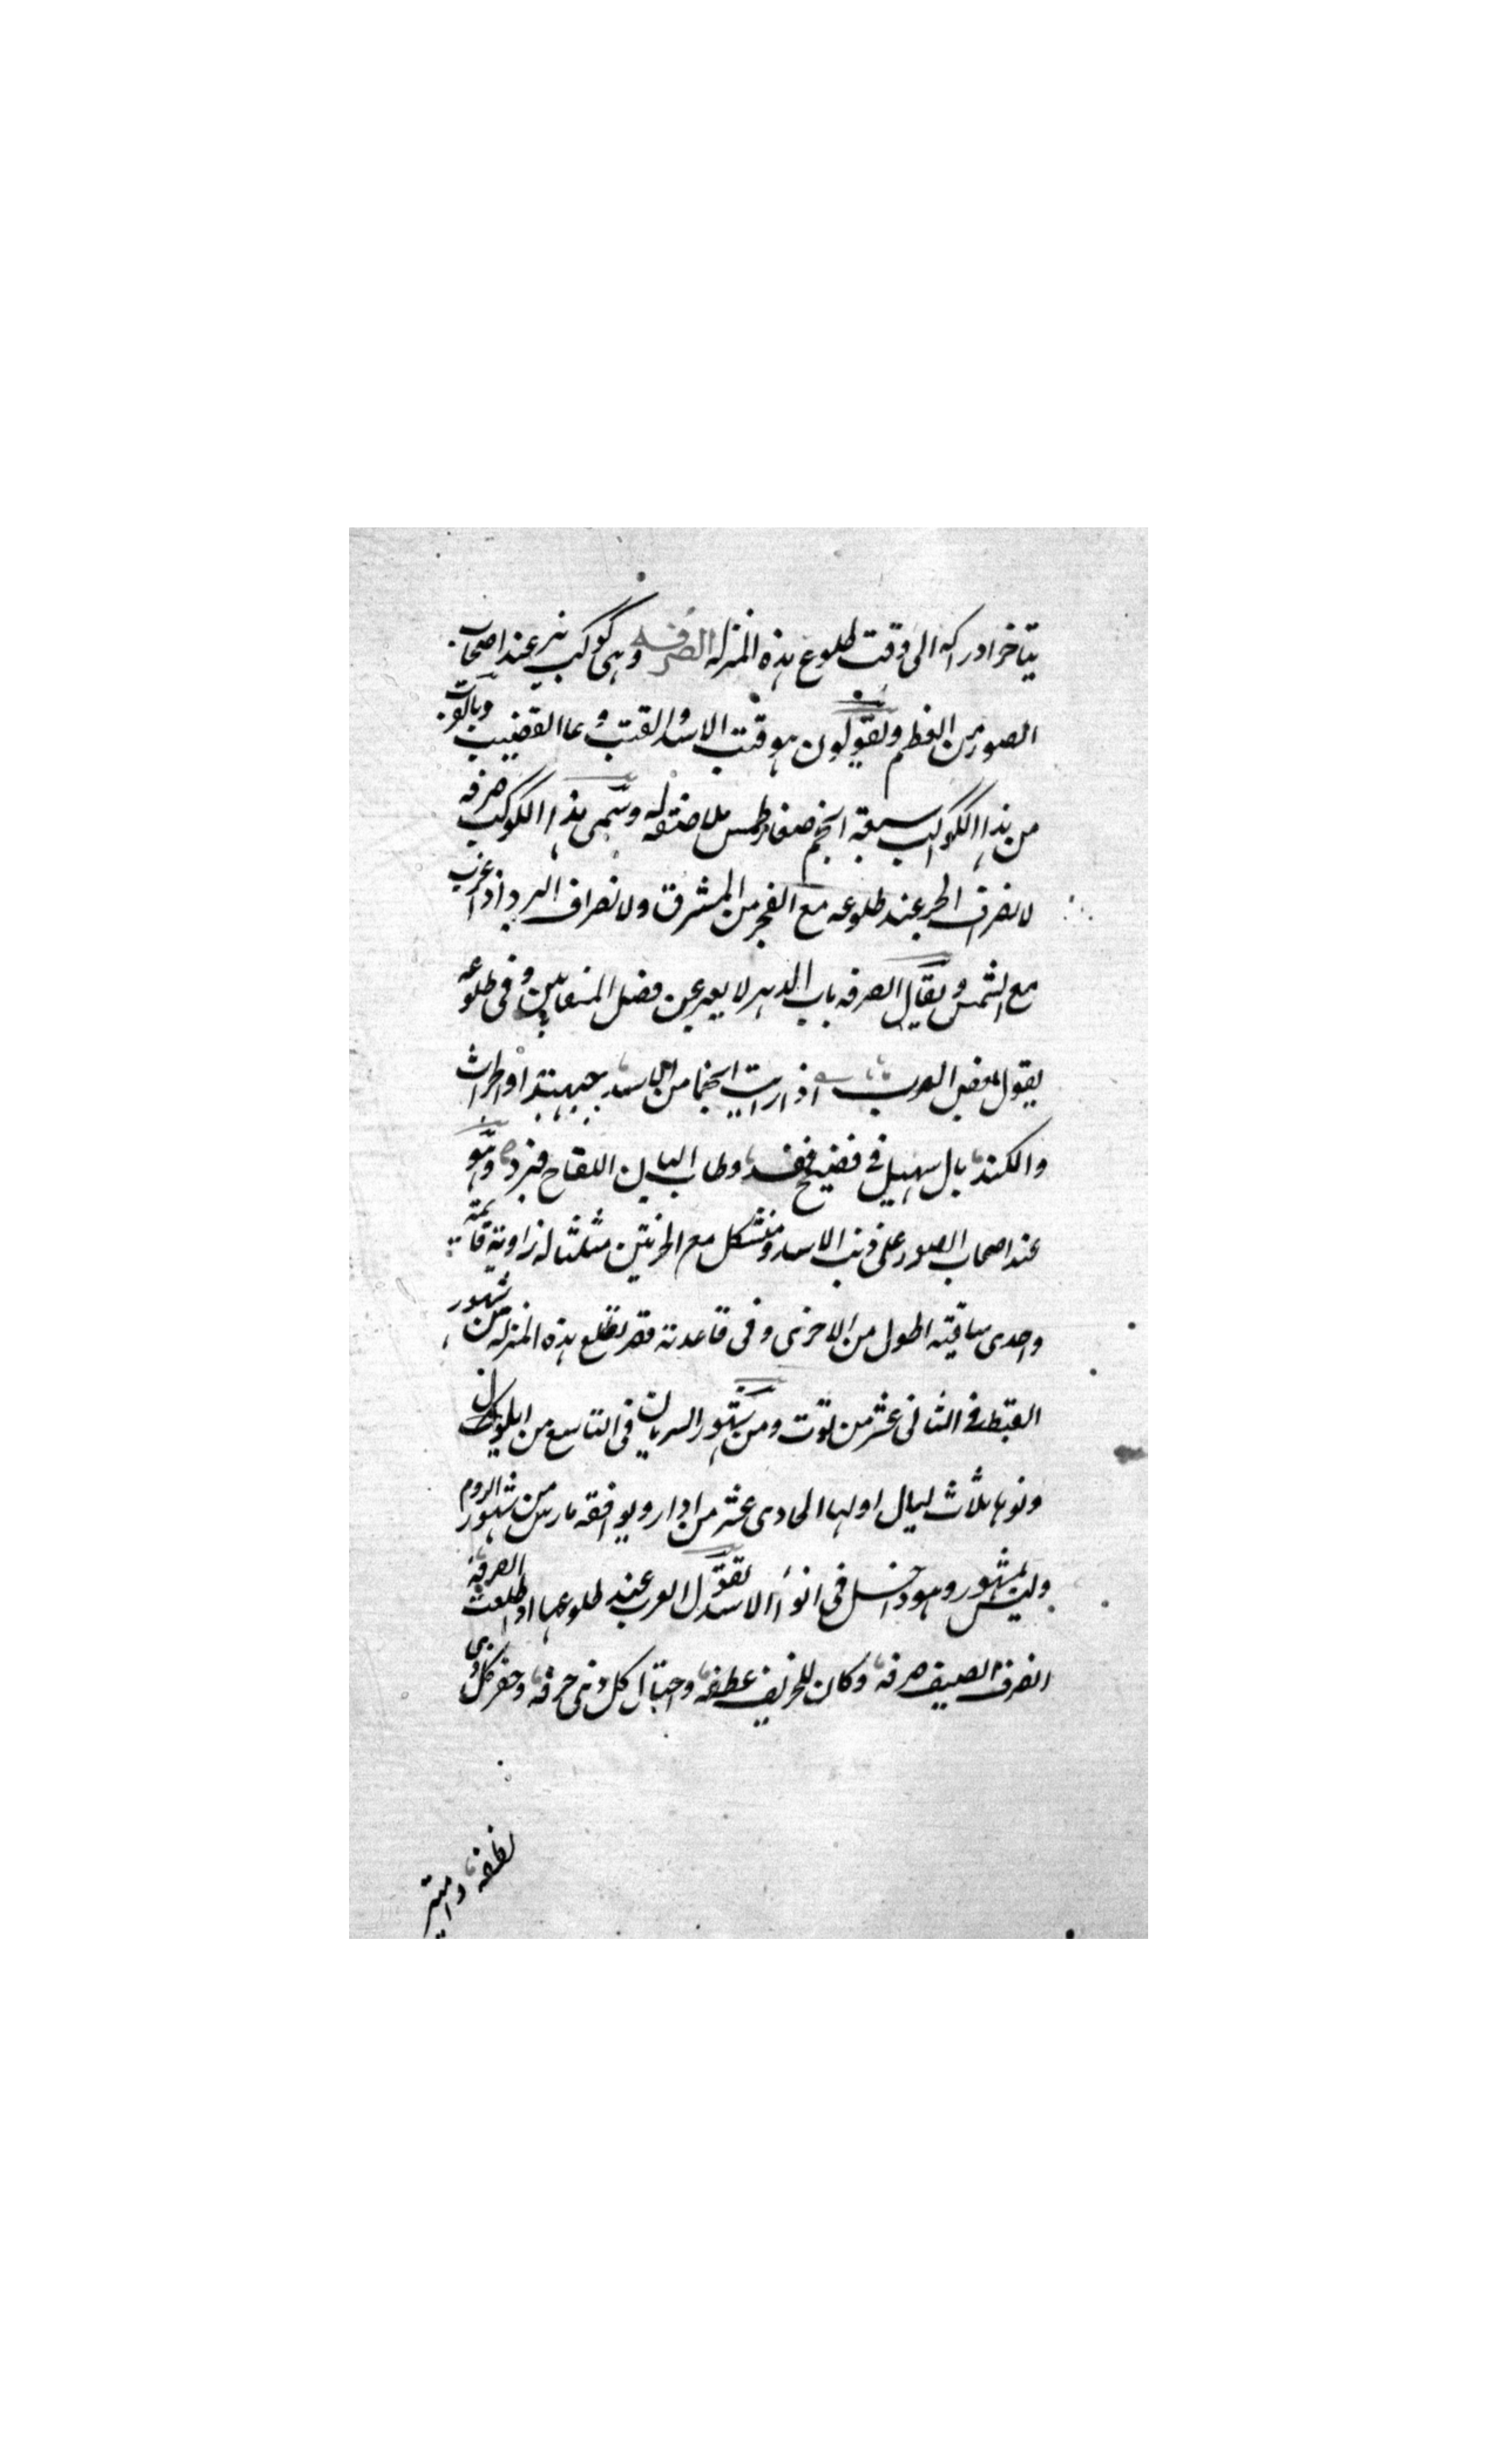 يتاخر ادراكه الى وقت طلوع هذه المنزله الصرفه وهى كوكب نير عند اصحاب
الصور من العظم ويقولون هو قنب الاسد والقنب وعا القضيب وبالقرب
من هذا الكوكب سبعة انجم صغار طمس ملاصقه له وسمى هذا الكوكب صرفه
لانصراف الحر عند طلوعه مع الفجر من المشرق ولانصراف البرد اذا غرب
مع الشمس ويقال الصرفه باب الدهر لا يفتر عن فصل المتعاقبين وفى طلوعه
يقول بعض العرب اذا رايت انجما من الاسد جبهته او الخراة
والكتد بال سهيل فى فضيخ ففسد وطاب البان اللقاح فبرد وهو
عند اصحاب الصور على ذنب الاسد ومتشكل مع الخرتين مثلثا له زاوية قايمة
واحدى ساقيته اطول من الاخرى وفى قاعدته قصر تطلع هذه المنزله من شهور
القبط فى الثانى عشر من توت ومن شهور السريان فى التاسع من ايلول
ونوها ثلاث ليال اولها الحادى عشر من اذار ويوافقه مارس من شهور الروم
وليس بمشهور وهو داخل فى انواء الاسد تقول العرب عند طلوعها اذا طلعت الصرفة
انصرف الصيف صرفه وكان للخريف عطفه واحتال كل ذى حرفه وجفر كل ذى
نطفه وامتير